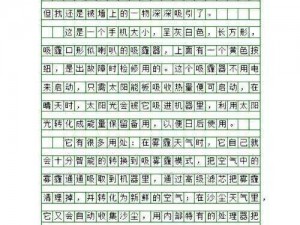 但我还是被墙上的一物深深吸引了。
这是一个手机大小，呈灰白色，长方形，
吸霾口形似喇叭的吸霾器，上面有一个黄色按
钮，是出故障时检修用的。这个吸霾器不用电
来启动，只需太阳能板吸收热量便可启动，在
晴天时，太阳光会被它吸进机器里，利用太阳
光转化成能量保留备用，以便日后使用。
它有很多用处：在雾霾天气，它自己就
会十分智能的转换到吸雾霾模式，把空气中的
雾霾通通吸取到机器里，通过高级滤芯把雾霾
清理掉，并转化为新鲜的空气；在沙尘天气里，
它又会自动收集沙尘，用内部特有的处理器把